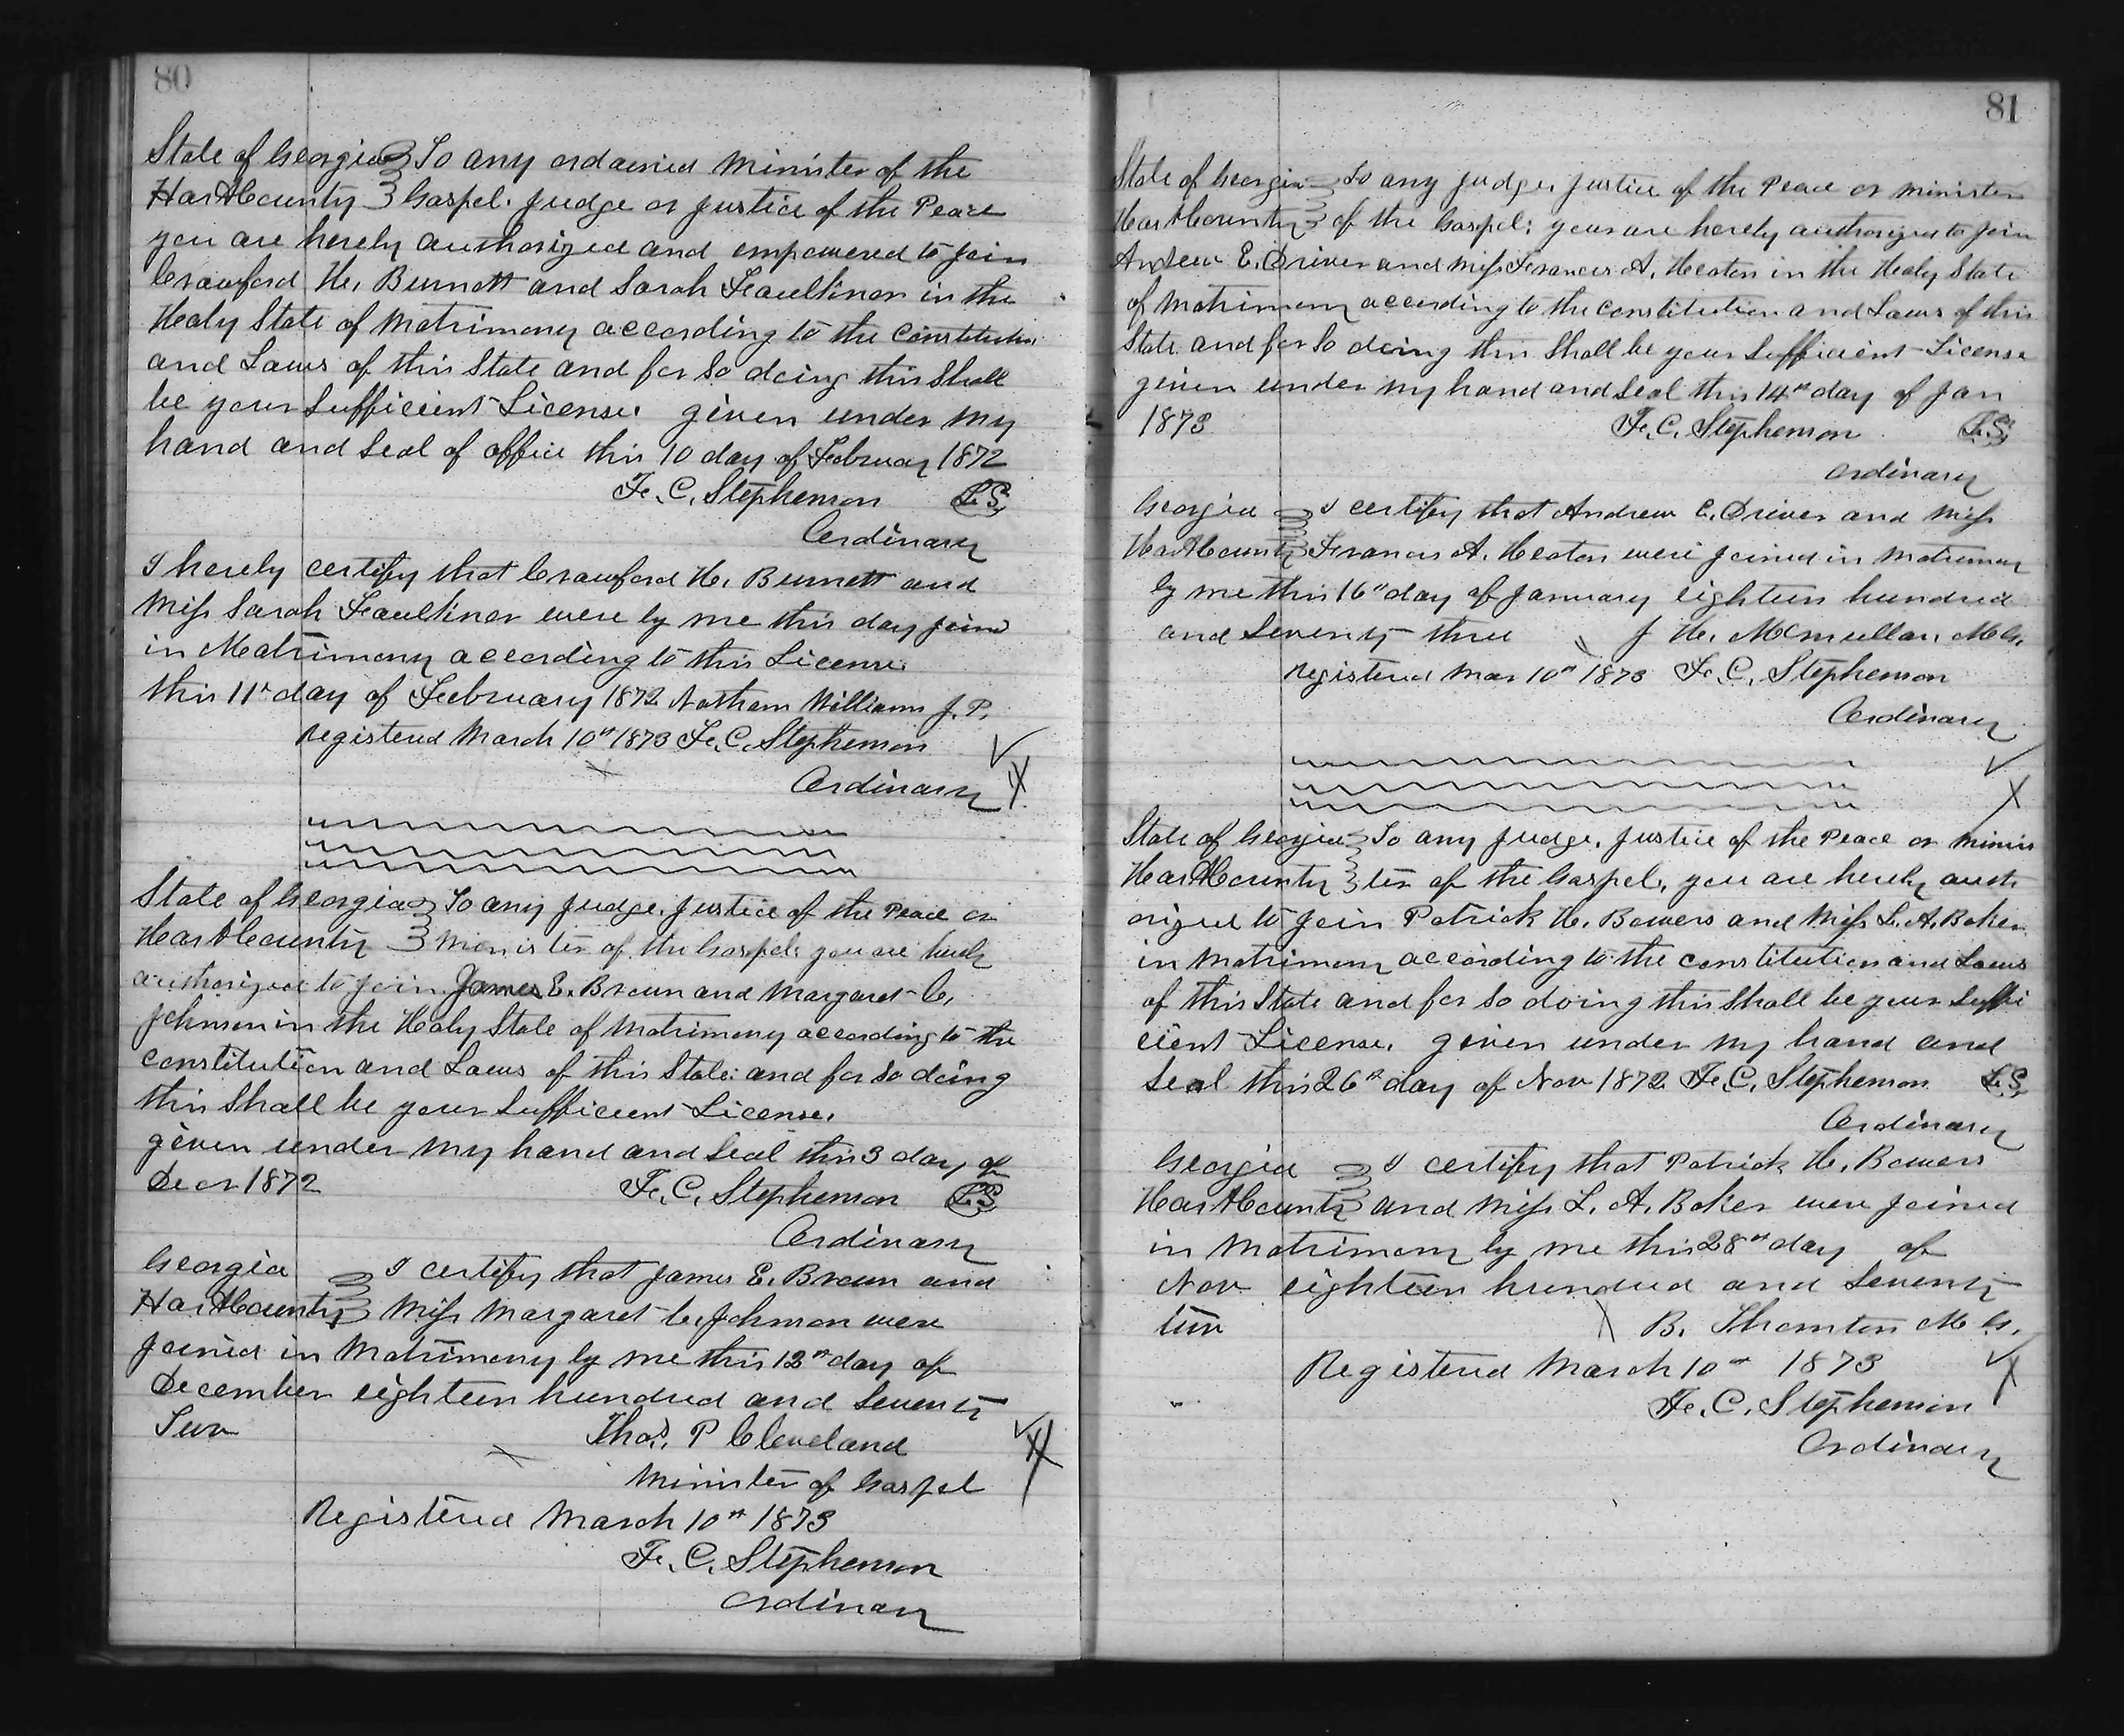 80
State of Georgia To any ordained Minister of the
Hart County Gospel. Judge or Justice of the Peace
you are hereby authorized and empowered to join
Crawford H. Burnett and Sarah Faulkner in the
Holy State of Matrimony according to the Constitution
and Laws of this State and for So doing this Shall
be your Sufficient License. given under my
hand and Seal of office this 10 day of February 1872
F. C. Stephenson L.S.
Ordinary
I hereby certify that Crawford H. Burnett and
Miss Sarah Faulkner were by me this day joind
in Matrimony according to this License.
this 11th day of February 1872 Nathan Williams J. P.
Registered March 10th 1873 F. C. Stephenson
Ordinary
State of Georgia To any Judge. Justice of the Peace or
Hart County Minister of the Gospel: you are herely
authorized to join James E. Brown and Margaret C.
Johnson in the Holy State of Matrimony according to the
constitution and Laws of this State: and for So doing
this Shall be your Sufficient License.
given under my hand and Seal this 3 day of
Decr 1872 F. C. Stephenson L.S.
Ordinary
Georgia I certify that James E. Brown and
Hart County Miss Margaret C. Johnson were
joined in Matrimony by me this 12th day of
December eighteen hundred and Seventy
Two Thos. P Cleveland
Minister of Gospel
Registered March 10th 1873
F. C. Stephenson
Ordinary
81
State of Georgia To any Judge. Justice of the Peace or Minister
Hart County of the Gospel: you are hereby authorized to join
Andrew E. Driver and Miss Frances A. Heaton in the Holy State
of Matrimony according to the constitution and Laws of this
State. and for So doing this Shall be your Sufficient License
given under my hand and Seal this 14th day of Jan
1873 F. C. Stephenson L.S.
Ordinary
Georgia I certify that Andrew E. Driver and Miss
Hart County Frances A. Heaton were joined in Matrimony
by me this 16th day of January eighteen hundred
and Seventy three J H. McMullan M G.
Registered Mar 10th 1873 F. C. Stephenson
Ordinary
State of Georgia To any Judge. Justice of the Peace or Minis
Hart County ter of the Gospel, you are hereby auth
orized to join Patrick H. Bowers and Miss L. A. Baker
in Matrimony according to the constitution and Laws
of this State and for So doing this Shall be your Suffi
cient License. given under my hand and
Seal this 26th day of Nov 1872 F. C. Stephenson L.S.
Ordinary
Georgia I certify that Patrick H. Bowers
Hart County and Miss L. A. Baker were joined
in Matrimony by me this 28th day of
Nov eighteen hundred and Seventy
two B. Thornton M G.
Registered March 10th 1873
F. C. Stephenson
Ordinary